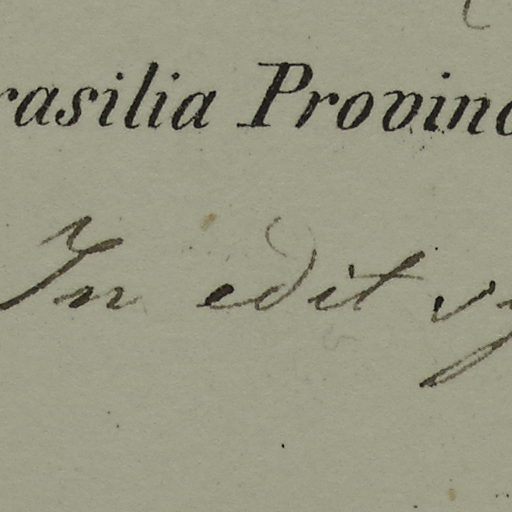 rasilia Provinc
In edit